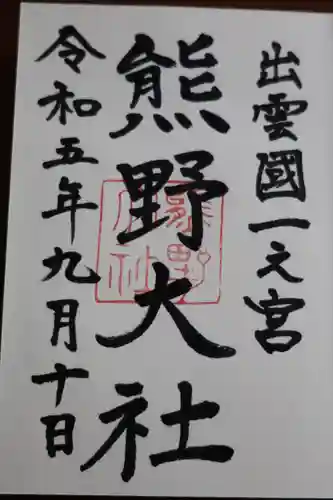 出雲國一之宮
熊野大社
令和五年九月十日